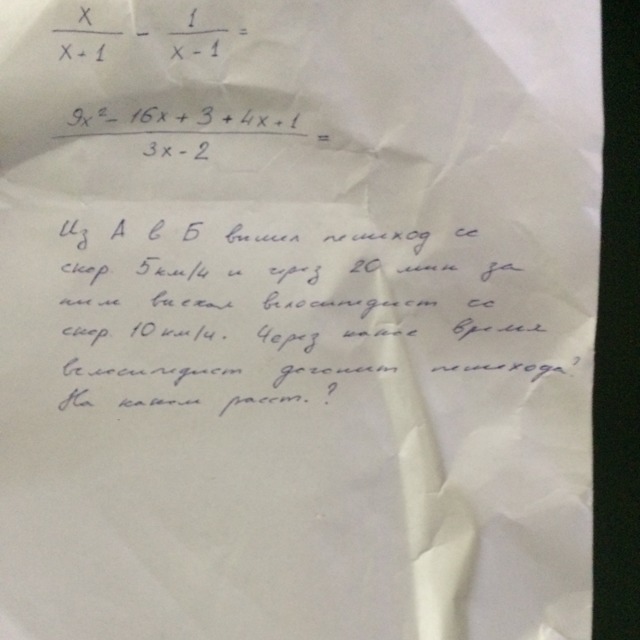 x/(x+1) - 1/(x-1) =
(9x² - 16x + 3 + 4x + 1)/(3x - 2) =
Из А в Б вышел пешеход со
скор. 5 км/ч и через 20 мин за
ним выехал велосипедист со
скор. 10 км/ч. Через какое время
велосипедист догонит пешехода?
На каком расст.?